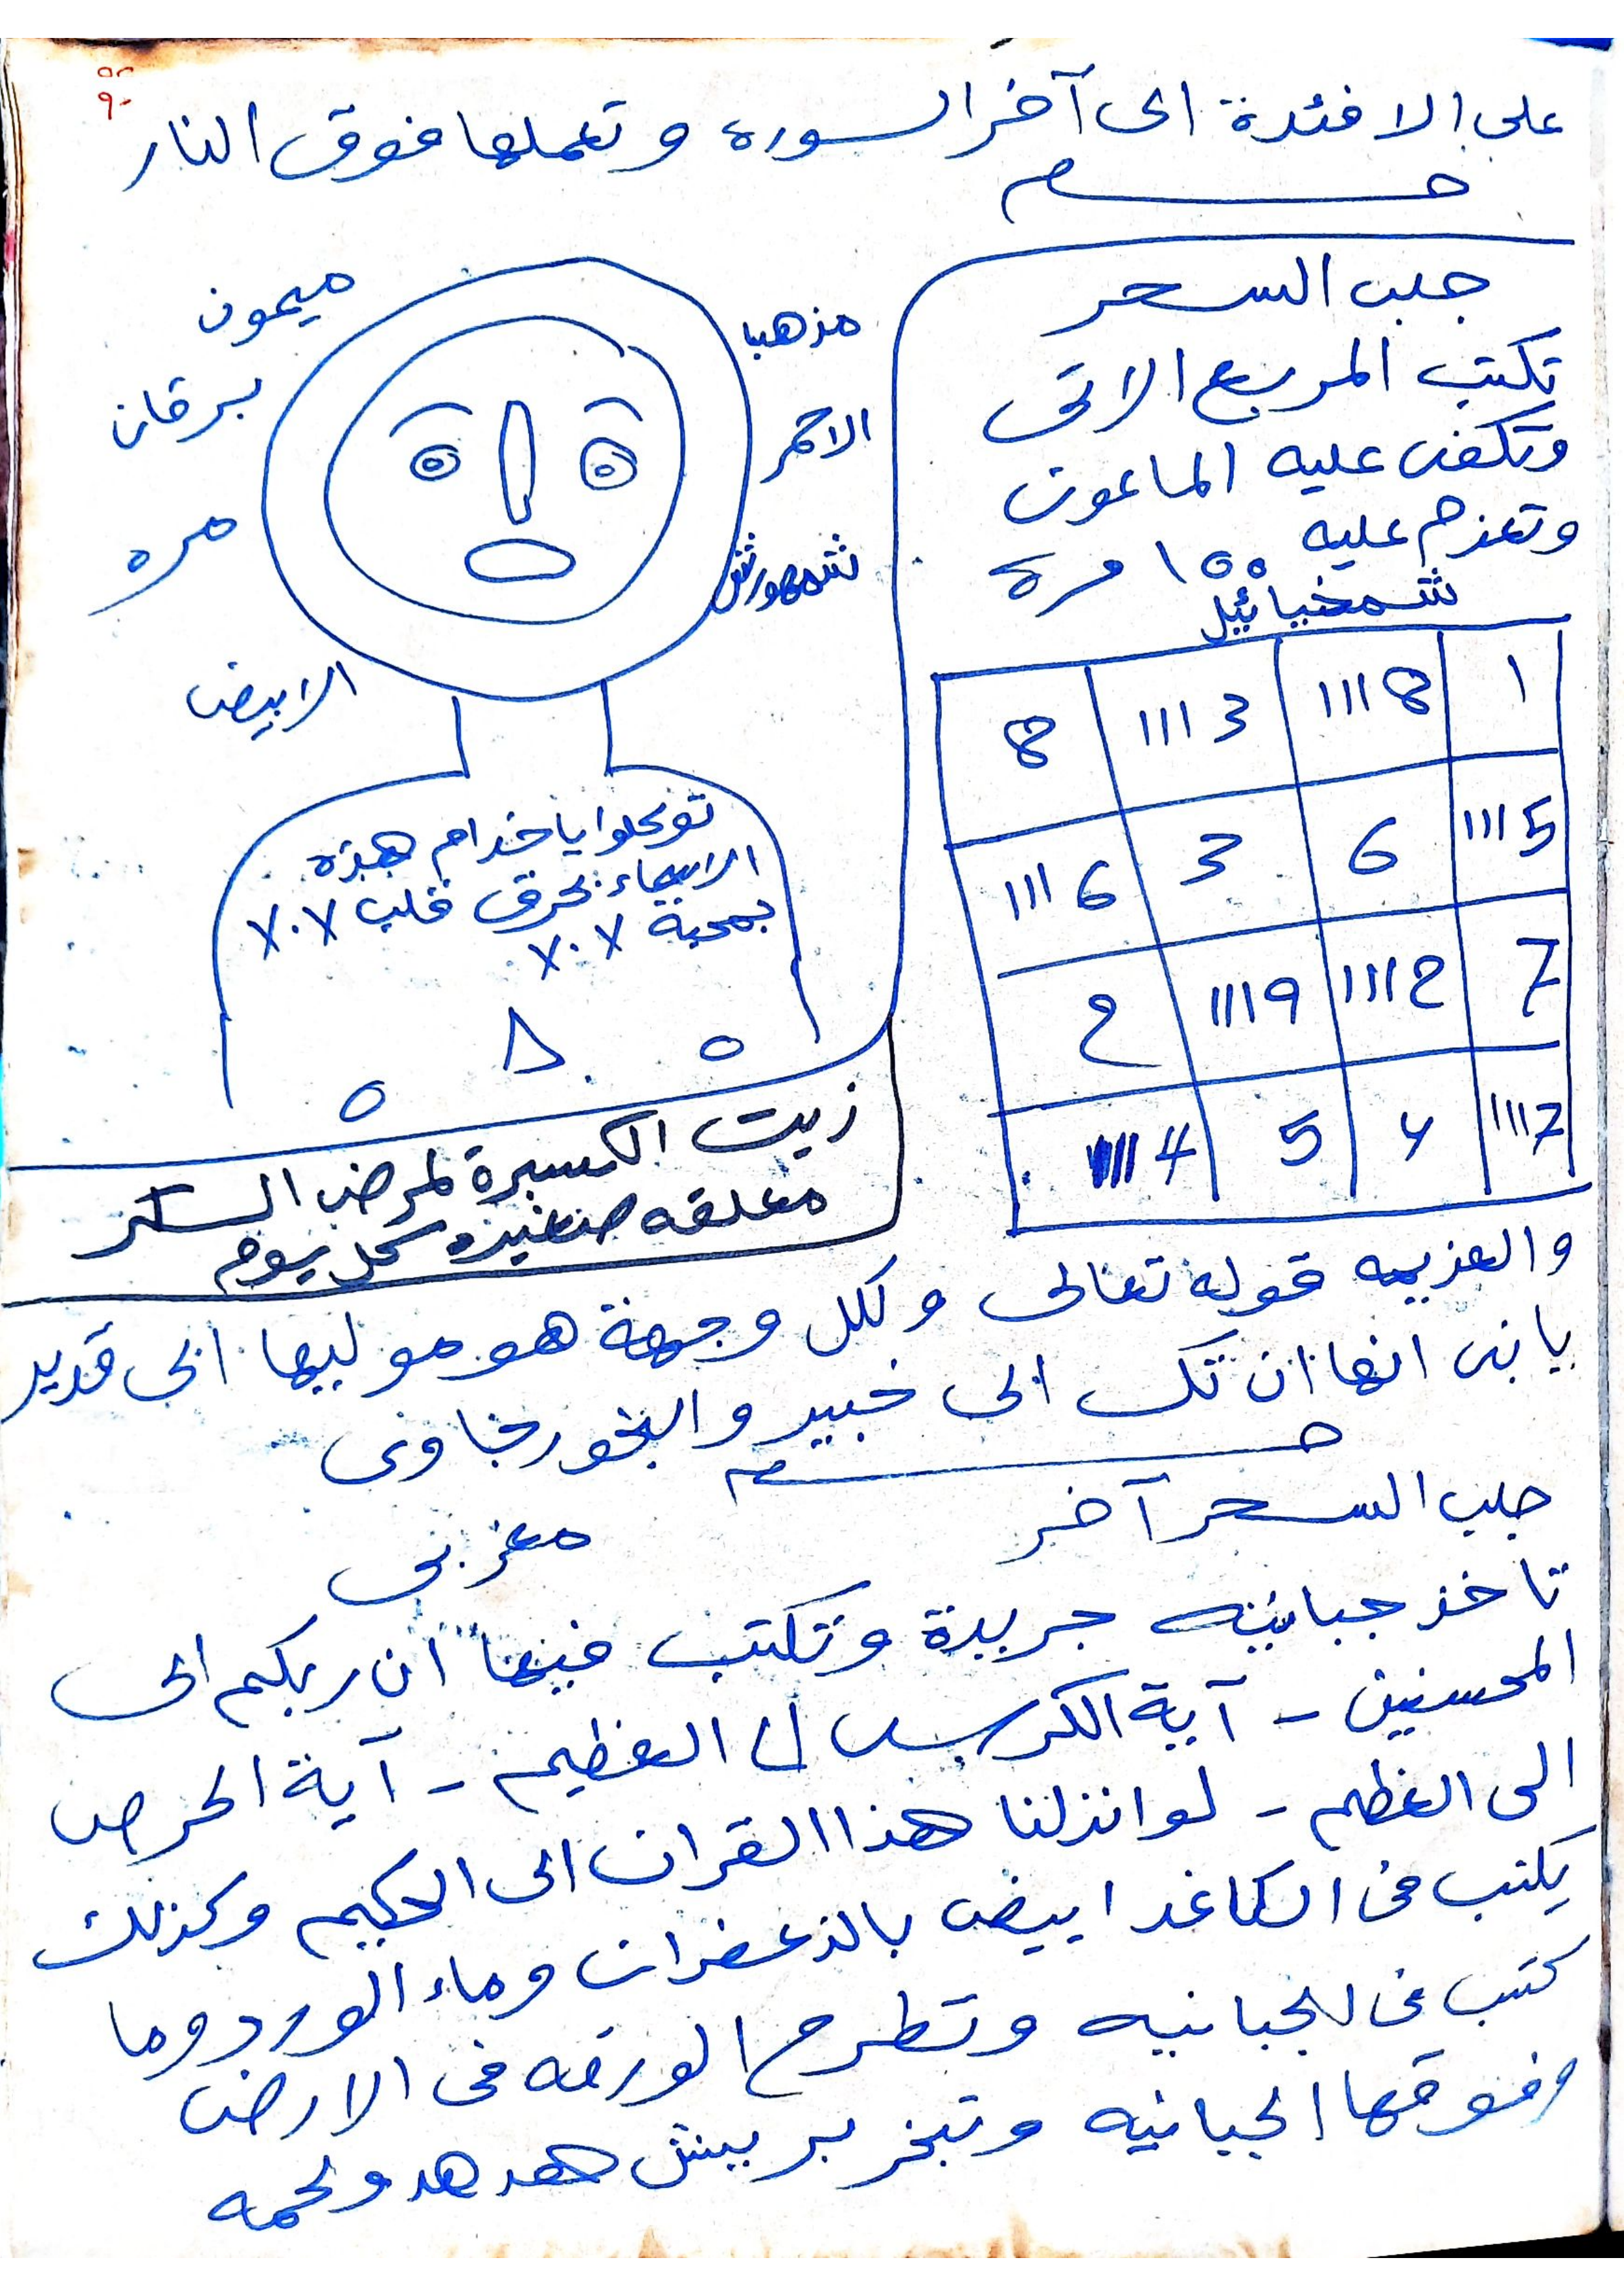 ٩٠
على الافئدة الى آخر السوره وتعملها فوق النار
جلب السحر
تكتب المربع الاتى
وتكفى عليه الماعون
وتعزم عليه ١٥٥ مرة
شمخيائيل
8 | 1113 | 1118 | 1
1116 | 3 | 6 | 1115
2 | 1119 | 1112 | 7
1114 | 5 | 4 | 1117
والعزيمه قوله تعالى ولكل وجهة هو موليها الى قدير
يا بنى انها ان تك الى خبير والبخور جاوى
ميمون
مذهبا
برقان
الاحمر
مره
شمهورش
الابيض
توكلوا يا خدام هذه
الاسماء بحرق قلب ٧٠٧
بمحبة ٧٠٧
زيت الكسبرة لمرض السكر
معلقه صغيره كل يوم
جلب السحر آخر
مغربى
تاخذ جبانيه جريدة وتكتب فيها ان ربكم الى
المحسنين - آية الكرسى الى العظيم - آية الحرص
الى العظيم - لو انزلنا هذا القران الى الحكيم وكذلك
يكتب فى الكاغد ابيض بالزعفران وماء الورد وما
كتب فى الجبانيه وتطرح الورقه فى الارض
وفوقها الجبانيه وتبخر بريش هدهد ولحمه